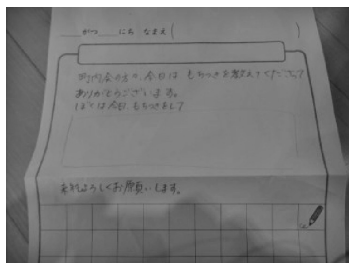 がつ にち なまえ( )
町内会の方々、今日はもちつきを教えてくださって
ありがとうございます。
ぼくは今日、もちつきをして
よろしくお願いします。